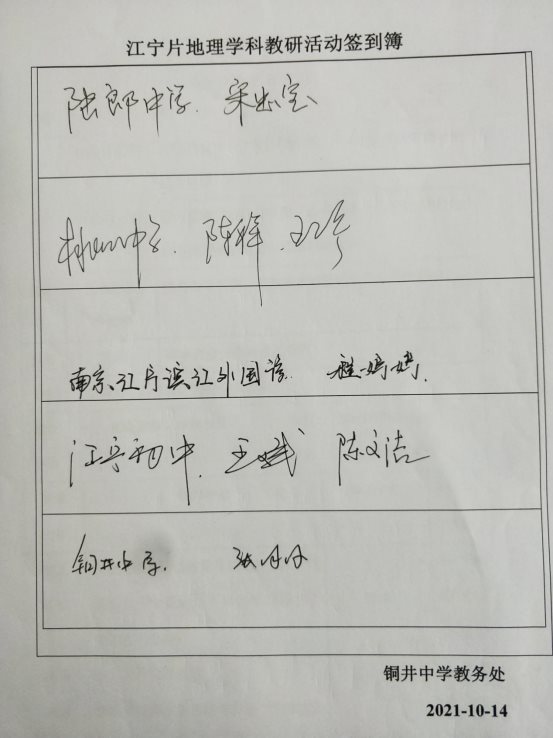 江宁片地理学科教研活动签到簿
陆郎中学. 宋
中学. 陈 王
南京江宁滨江外国语.
江宁初中. 王斌 陈文洁
铜井中学. 张丹丹
铜井中学教务处
2021-10-14